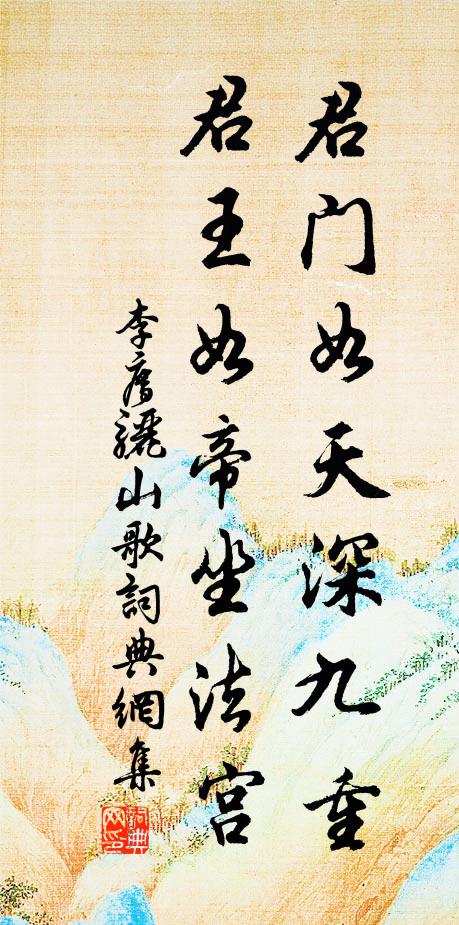 君门如天深九重
君王如帝坐法宫
李廌骊山歌詞典網集
詞典网印